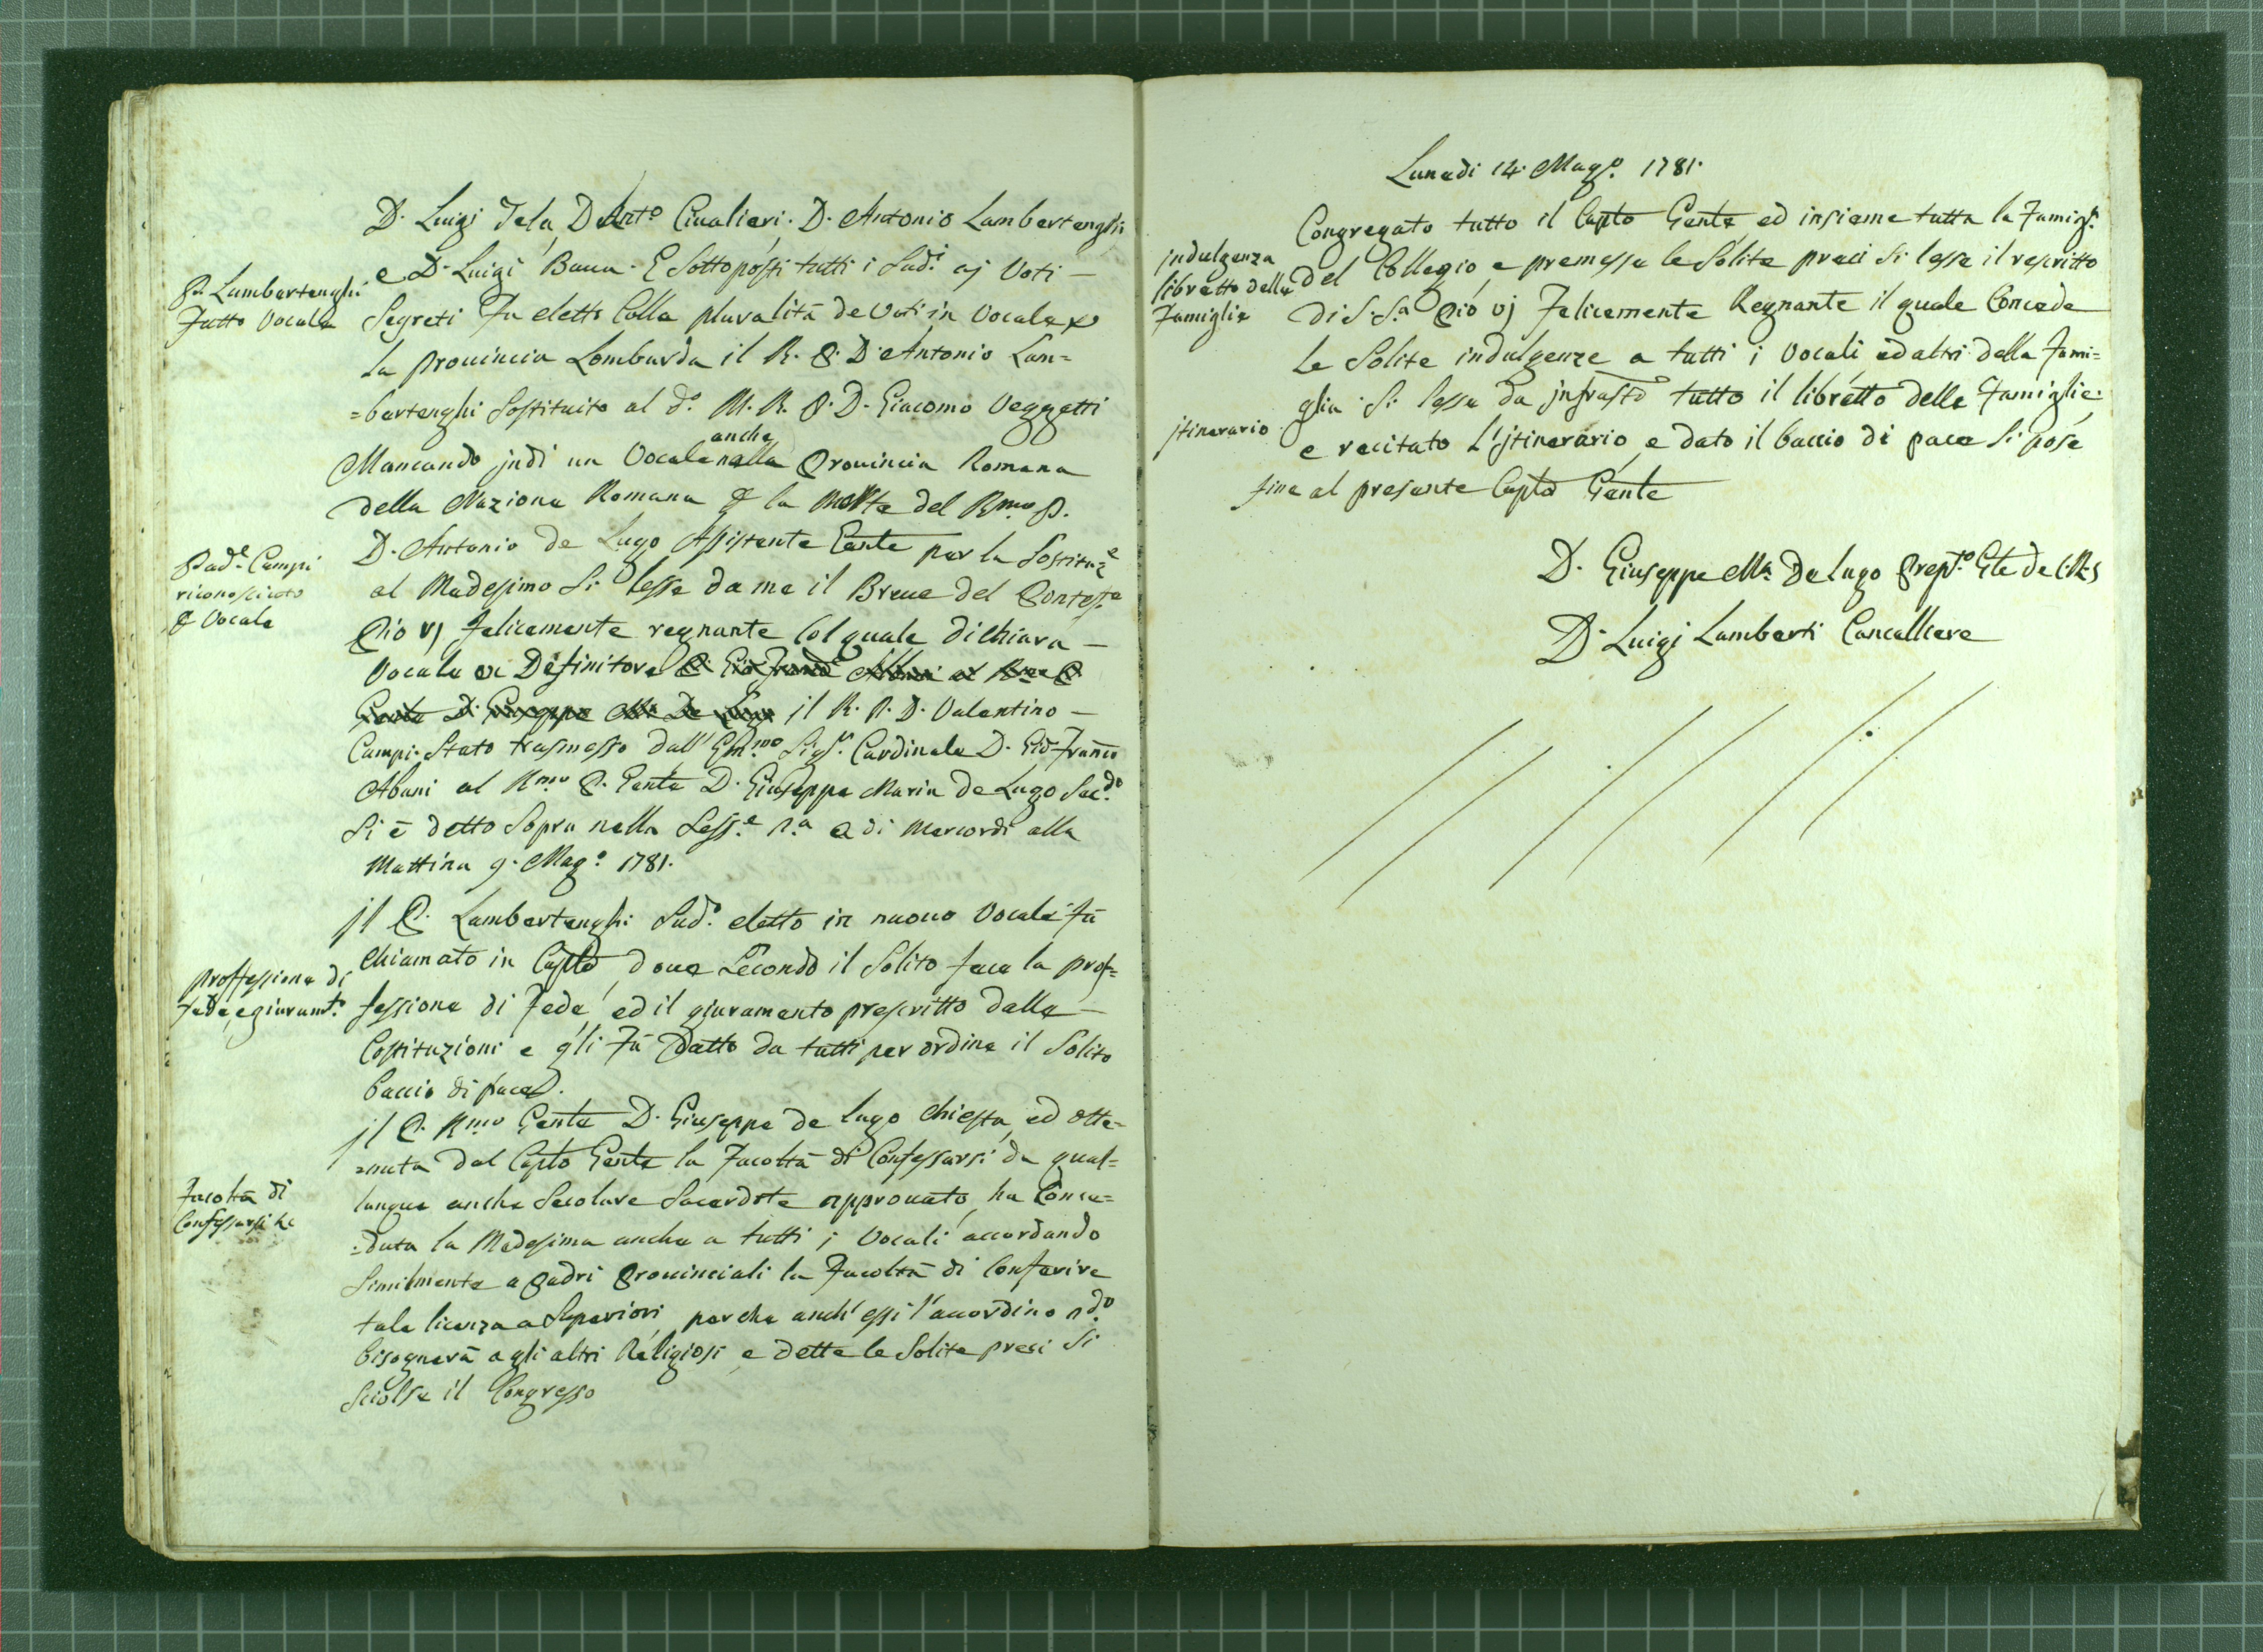 D. Luigi Tela, D. Ant.o Civalieri. D. Antonio Lambertenghi
e D. Luigi Bava. E Sottoposti tutti i Sud.i aj Voti —
P. Lambertenghi
fatto Vocale
Segreti Fu eletto Colla pluralità de Voti in Vocale p
la provincia Lombarda il R. P. D. Antonio Lam=
=bertenghi Sostituito al d.o M. R. P. D. Giacomo Vezzetti
anche
Mancando jndi un Vocale nella Provincia Romana
della Nazione Romana p la Morte del R.mo P.
D. Antonio de Lugo Assistente Gente per la Sostituz.e
Pad.e Campi
riconosciuto
p Vocale
al Medesimo Si lesse da me il Breve del Pontef.e
Pio vj felicemente regnante Col quale dichiara —
Vocale e Definitore
il R. P. D. Valentino —
Campi. Stato trasmesso dall' Em.mo Sig.r Cardinale D. Gio Franco
Albani al R.mo P. Gente D. Giuseppe Maria de Lugo Sec.do
Si è detto Sopra nella Sess.e 1.a a di Mercordi alla
Mattina 9. Mag.o 1781.
jl P. Lambertenghi Sud.o eletto in nuovo Vocale fù
Chiamato in Caplo, dove Secondo il Solito fece la prof=
Proffessione di
Fede, e giuram.to
fessione di Fede, ed il giuramento prescritto dalle —
Costituzioni e gli Fù Datto da tutti per ordine il Solito
baccio di pace.
jl P. R.mo Gente D. Giuseppe de Lugo Chiesta, ed otte=
=nuta dal Caplo Gente la Facoltà di Confessarsi da qual=
Facoltà di
Confessarsi &c
lunque anche Secolare Sacerdote approvato, ha Conce=
=duta la Medesima anche a tutti i Vocali accordando
Similmente a Padri Provinciali la Facoltà di Conferire
tale licenza a Superiori, perche anch' essi l'accordino q.do
bisognerà a gli altri Religiosi, e dette le Solite preci Si
Sciolse il Congresso
Lunedi 14. Mag.o 1781.
Congregato tutto il Caplo Gente, ed insieme tutta la Famig.a
indulgenza
libretto delle
Famiglie
del Collegio, e premesse le Solite preci Si lesse il rescritto
di S. S.a Pio vj Felicemente Regnante il quale Concede
Le Solite indulgenze a tutti i Vocali ed altri della Fami=
glia. Si lesse da jnfrasto tutto il libretto delle Famiglie.
jtinerario
e recitato L'jtinerario, e dato il baccio di pace Si pose
fine al presente Caplo Gente
D. Giuseppe M.a De Lugo Prep.to Gle de C. R. S
D. Luigi Lamberti Cancelliere